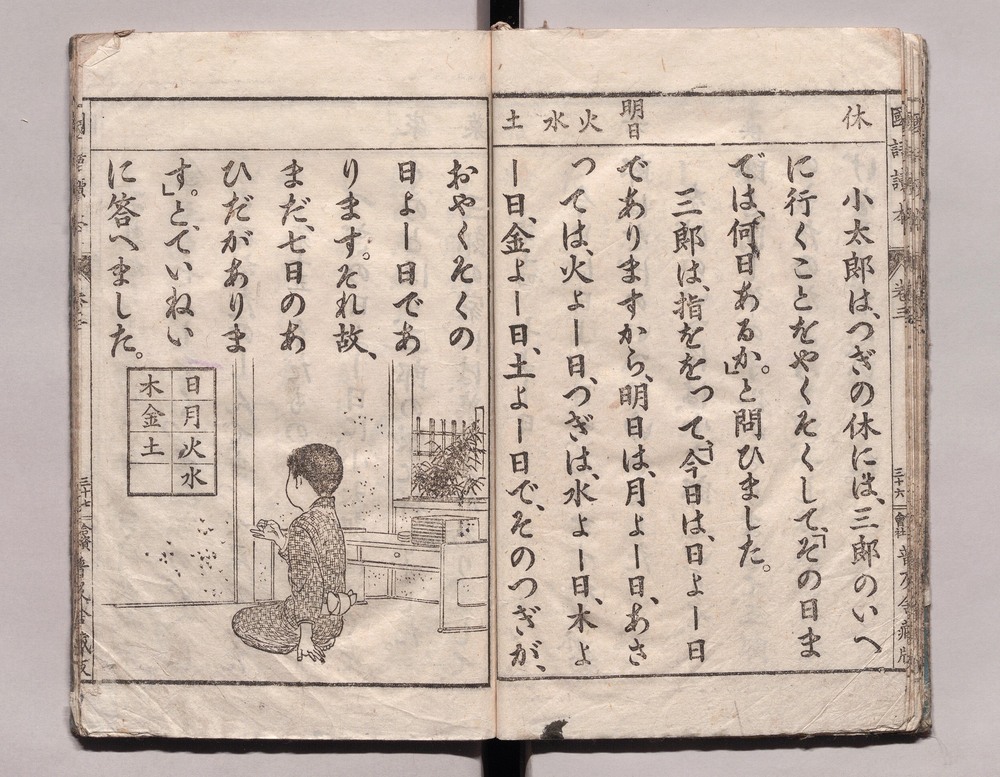 國語讀本 卷三 三十六 會社 普及舍藏版
休
明日
火
水
土
小太郎は、つぎの休には、三郎のいへ
に行くことをやくそくして、「その日ま
では、何日あるか。」と問ひました。
三郎は、指ををつて、「今日は、日よー日
でありますから、明日は、月よー日、あさ
つては、火よー日、つぎは、水よー日、木よ
ー日、金よー日、土よー日で、そのつぎが、
おやくそくの
日よー日であ
ります。それ故、
まだ、七日のあ
ひだがありま
す。」と、ていねい
に答へました。
日月火水
木金土
三十七